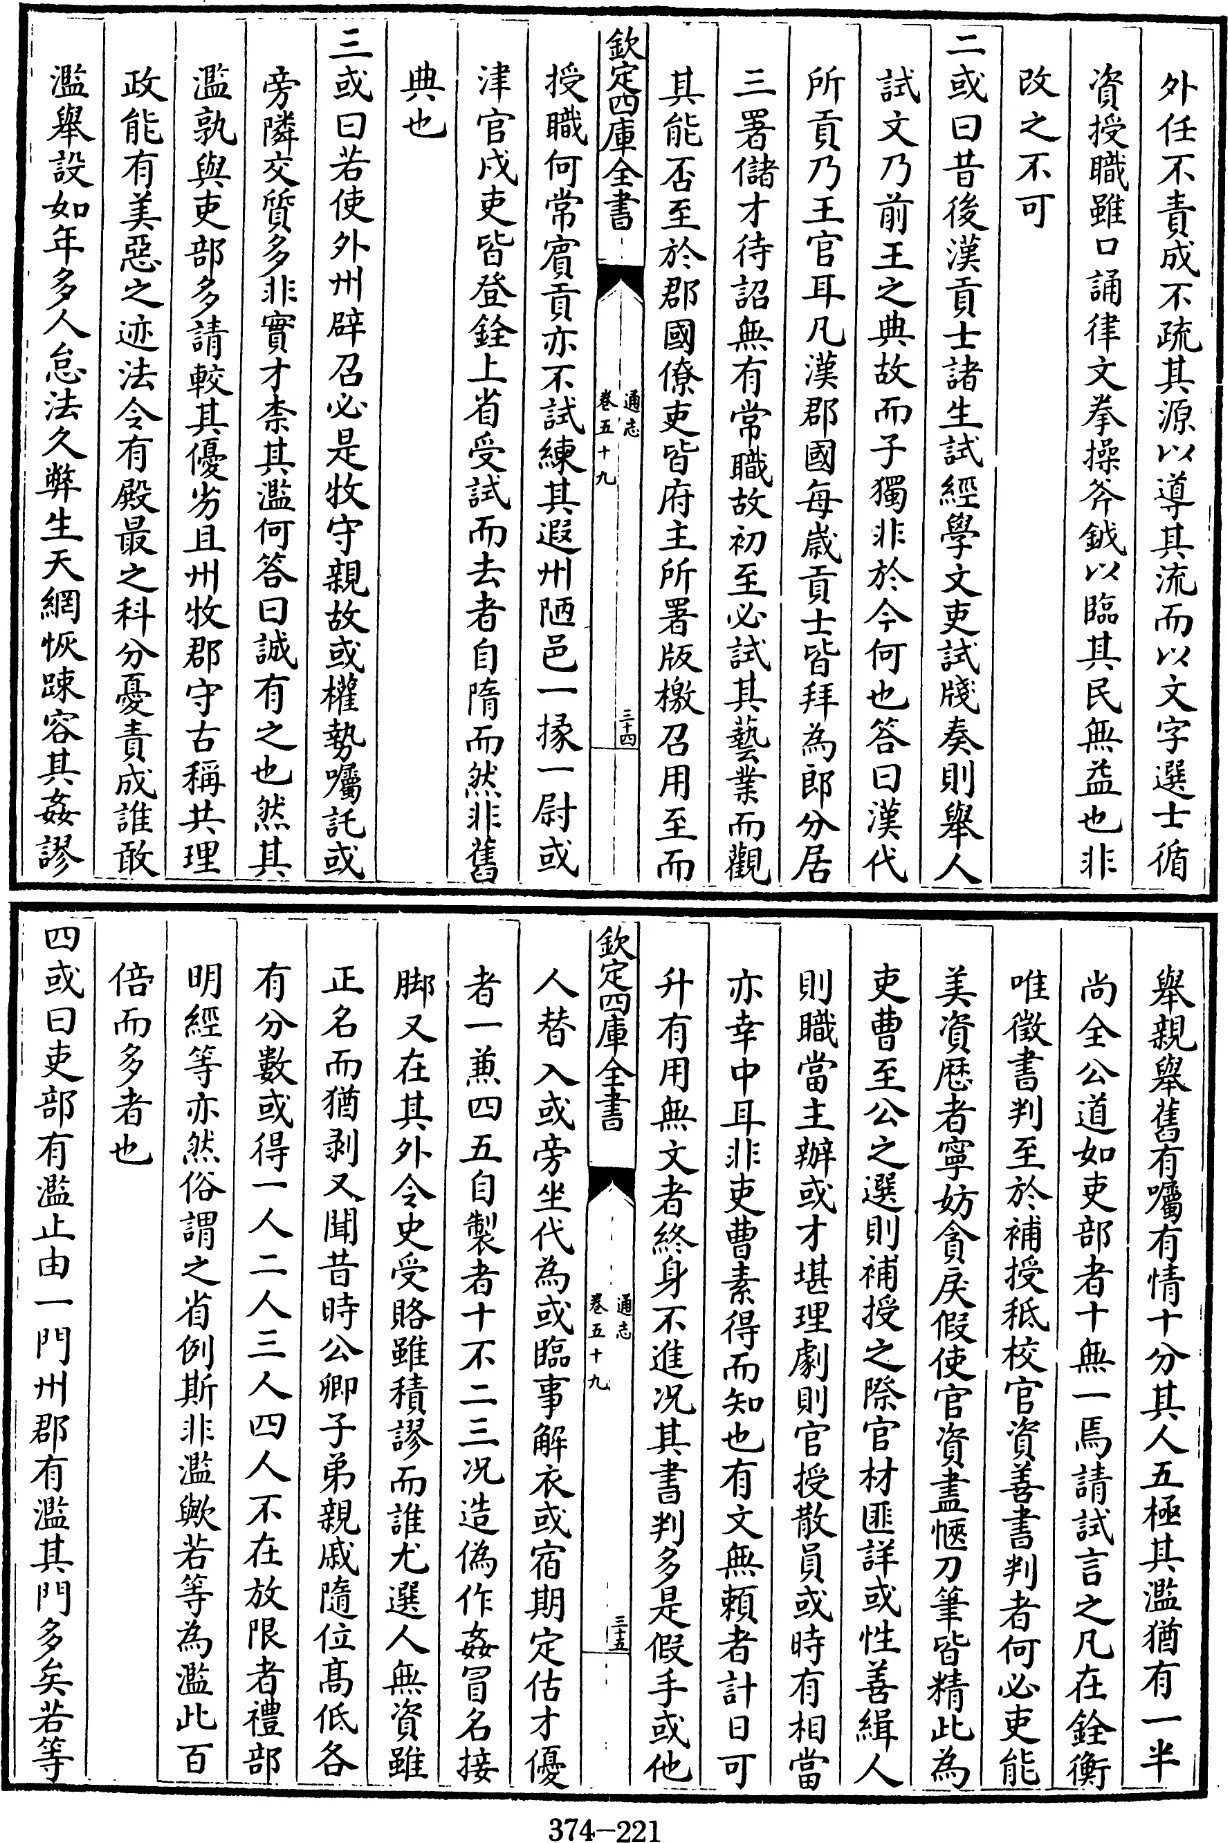 外任不責成不疏其源以導其流而以文字選士循
資授職雖口誦律文拳操斧鉞以臨其民無益也非
改之不可
二或曰昔後漢貢士諸生試經學文吏試牋奏則舉人
試文乃前王之典故而子獨非於今何也答曰漢代
所貢乃王官耳凡漢郡國每歲貢士皆拜為郎分居
三署儲才待詔無有常職故初至必試其藝業而觀
其能否至於郡國僚吏皆府主所署版檄召用至而
欽定四庫全書
通志
卷五十九
三十四
授職何常賓貢亦不試練其遐州陋邑一掾一尉或
津官戍吏皆登銓上省受試而去者自隋而然非舊
典也
三或曰若使外州辟召必是牧守親故或權勢囑託或
旁隣交質多非實才柰其濫何答曰誠有之也然其
濫孰與吏部多請較其優劣且州牧郡守古稱共理
政能有美惡之迹法令有殿最之科分憂責成誰敢
濫舉設如年多人怠法久弊生天網恢踈容其姦謬
舉親舉舊有囑有情十分其人五極其濫猶有一半
尚全公道如吏部者十無一焉請試言之凡在銓衡
唯徵書判至於補授秪校官資善書判者何必吏能
美資歷者寧妨貪戾假使官資盡愜刀筆皆精此為
吏曹至公之選則補授之際官材匪詳或性善緝人
則職當主辦或才堪理劇則官授散員或時有相當
亦幸中耳非吏曹素得而知也有文無賴者計日可
升有用無文者終身不進况其書判多是假手或他
欽定四庫全書
通志
卷五十九
三十五
人替入或旁坐代為或臨事解衣或宿期定估才優
者一兼四五自製者十不二三况造偽作姦冒名接
脚又在其外令史受賂雖積謬而誰尤選人無資雖
正名而猶剥又聞昔時公卿子弟親戚隨位髙低各
有分數或得一人二人三人四人不在放限者禮部
明經等亦然俗謂之省例斯非濫歟若等為濫此百
倍而多者也
四或曰吏部有濫止由一門州郡有濫其門多矣若等
374-221